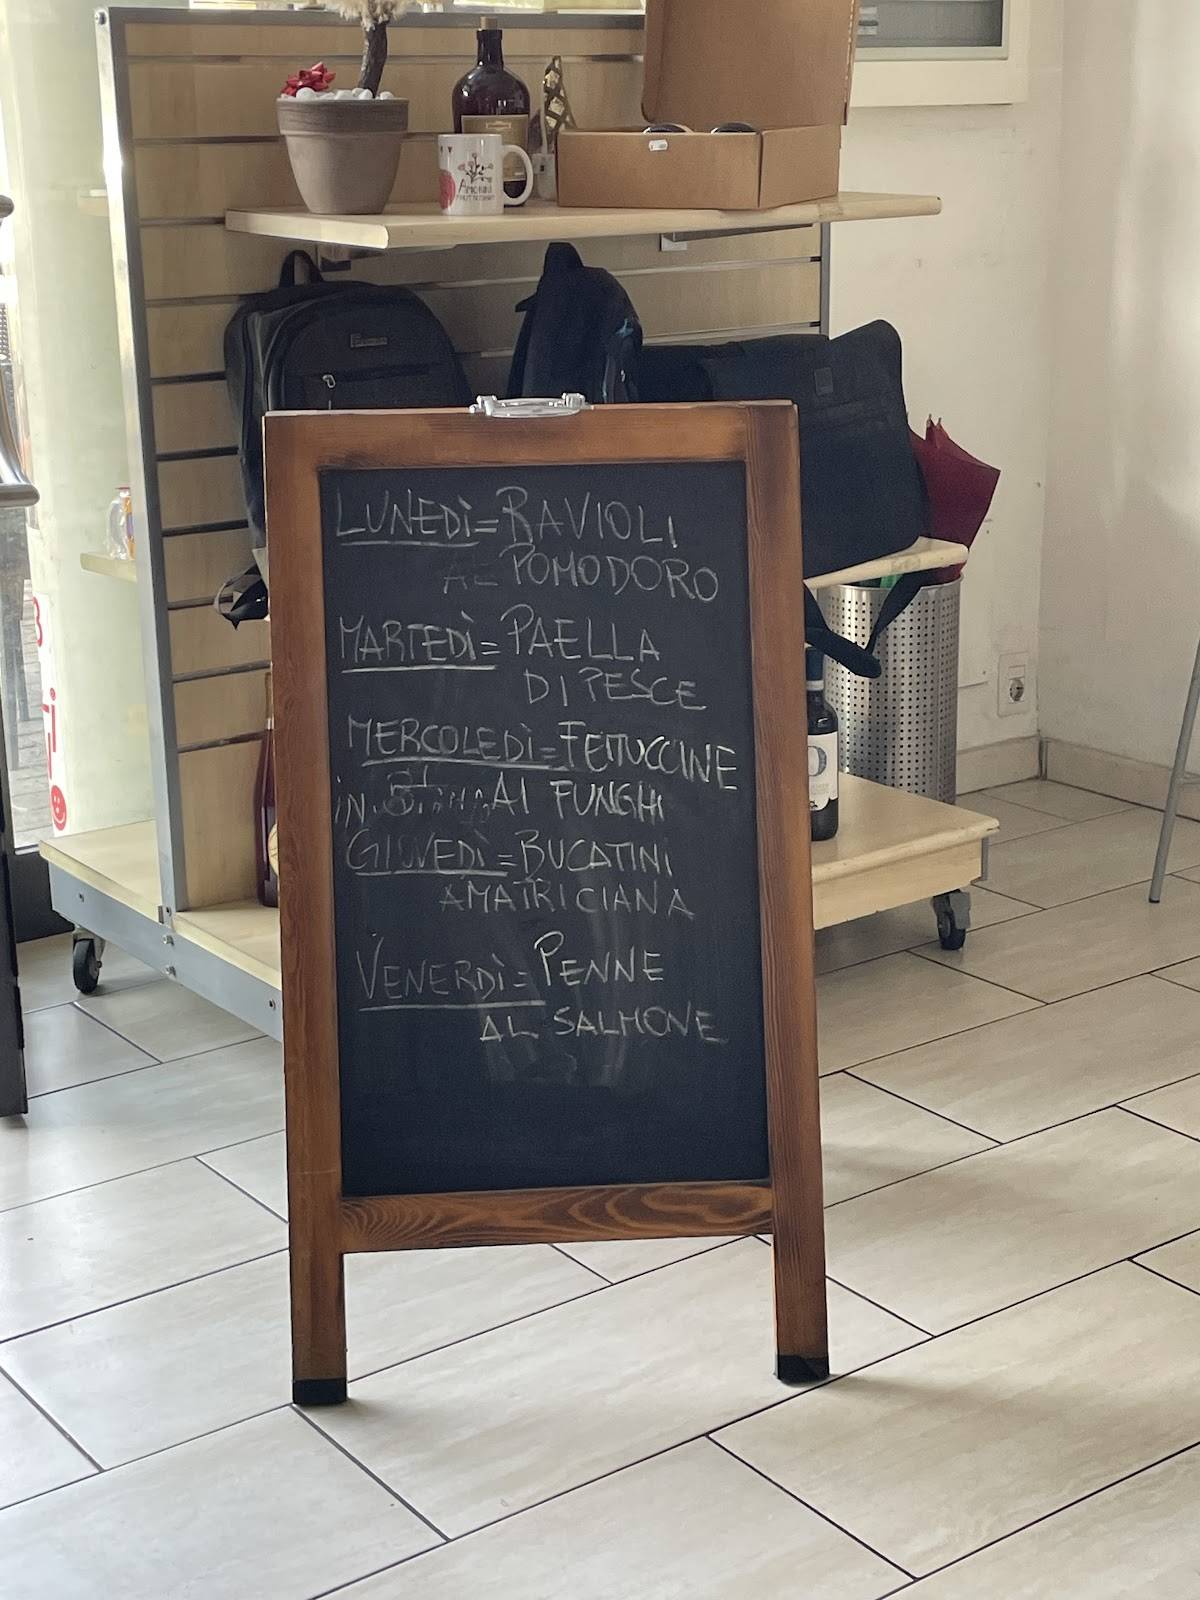 AMORINI
LUNEDÌ = RAVIOLI
AL POMODORO
MARTEDÌ = PAELLA
DI PESCE
MERCOLEDÌ = FETTUCCINE
IN AI FUNGHI
GIOVEDÌ = BUCATINI
AMATRICIANA
VENERDÌ = PENNE
AL SALMONE